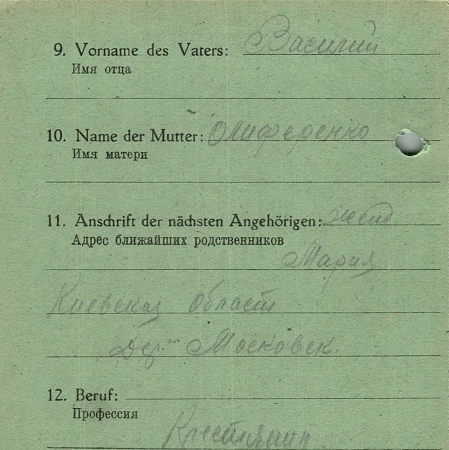 9. Vorname des Vaters: Василий
Имя отца
10. Name der Mutter: Олиференко
Имя матери
11. Anschrift der nächsten Angehörigen:
Адрес ближайших родственников
Мария
Киевская Област
Московск.
12. Beruf:
Профессия
Крестянин